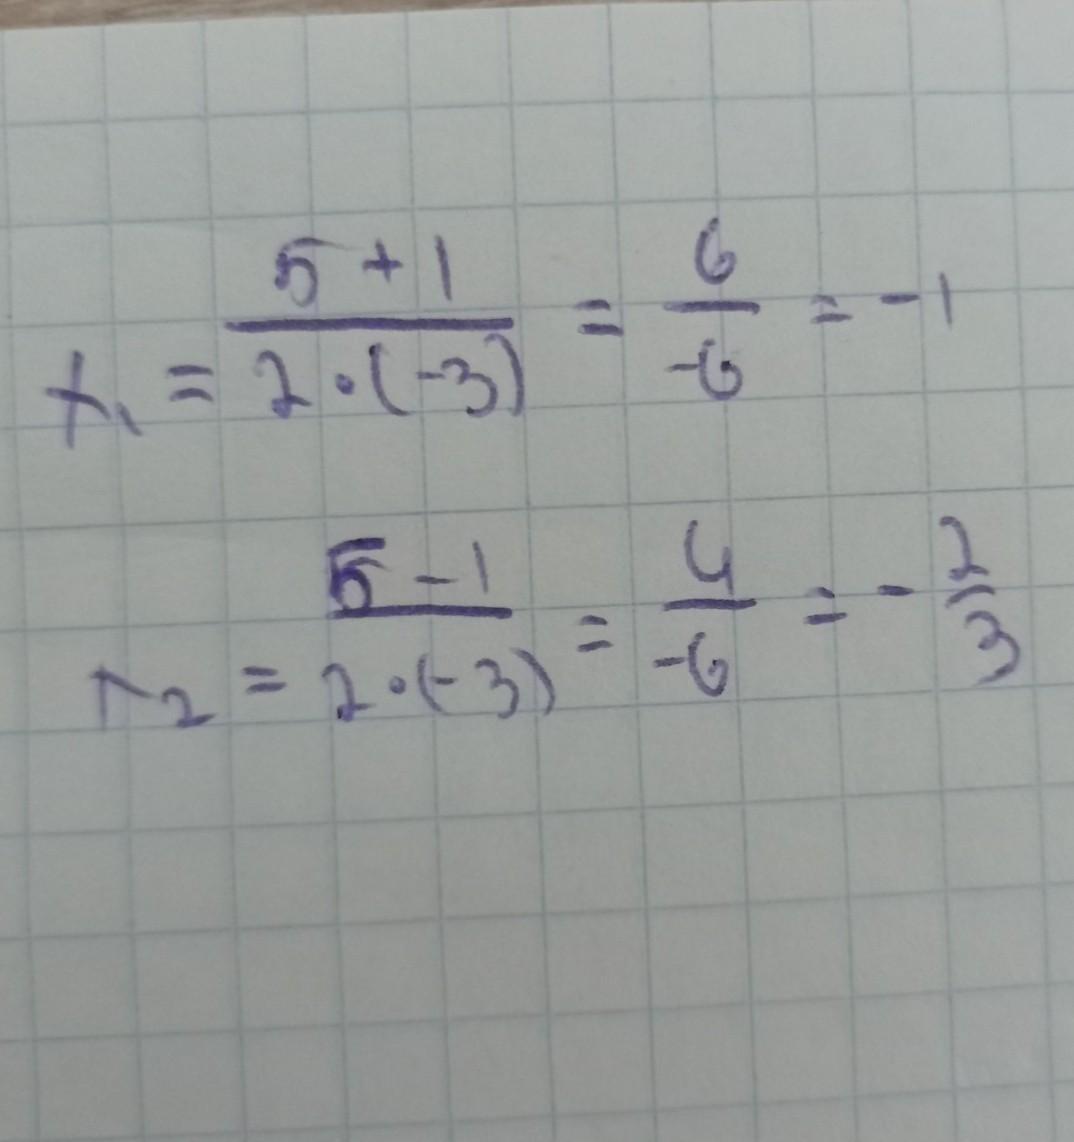 x₁ = (5 + 1)/(2 · (-3)) = 6/(-6) = -1
x₂ = (5 - 1)/(2 · (-3)) = 4/(-6) = -2/3